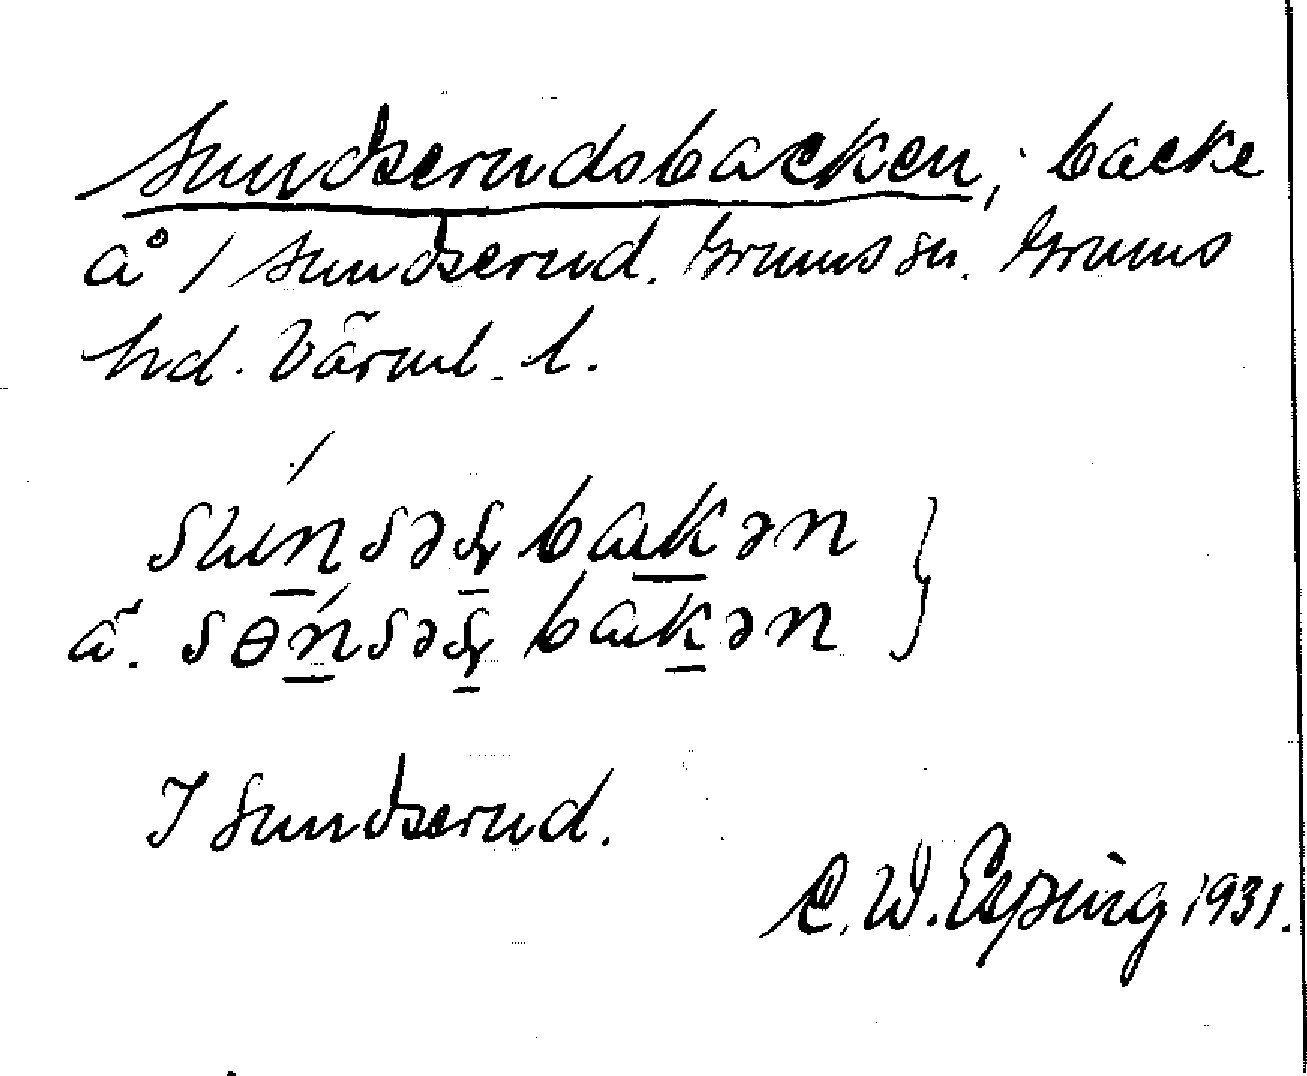 Sundserudsbacken, backe
å / Sundserud. Grums sn. Grums
hd. Värml. l.
sɯńsəʂbakən
ä. sɵńsəʂbakən
I Sundserud.
C. W. Esping 1931.